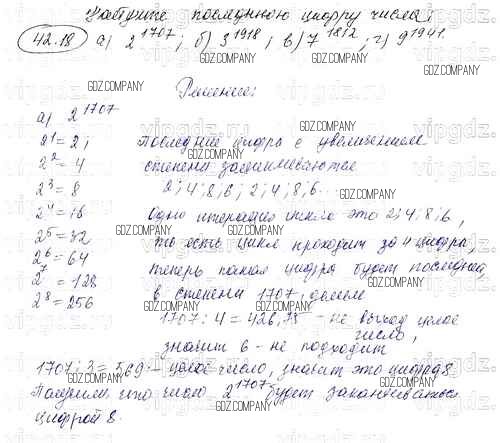 Найдите последнюю цифру числа:
42.18 а) 2^1707; б) 3^1918; в) 7^1812; г) 9^1941.
Решение:
а) 2^1707
2^1 = 2; Последние цифры с увеличением
2^2 = 4 степени зацикливаются
2^3 = 8 2; 4; 8; 6; 2; 4; 8; 6...
2^4 = 16 Одна итерация цикла это 2; 4; 8; 6,
2^5 = 32 то есть цикл проходит за 4 цифры,
2^6 = 64 теперь какая цифра будет последней
2^7 = 128 в степени 1707, делим
2^8 = 256 1707 : 4 = 426,75 - не выход целое
число,
значит 6 - не подходит
1707 : 3 = 569 - целое число, значит это цифра 8.
Получим что число 2^1707 будет заканчиваться
цифрой 8.
GDZ.COMPANY
vipgdz.ru